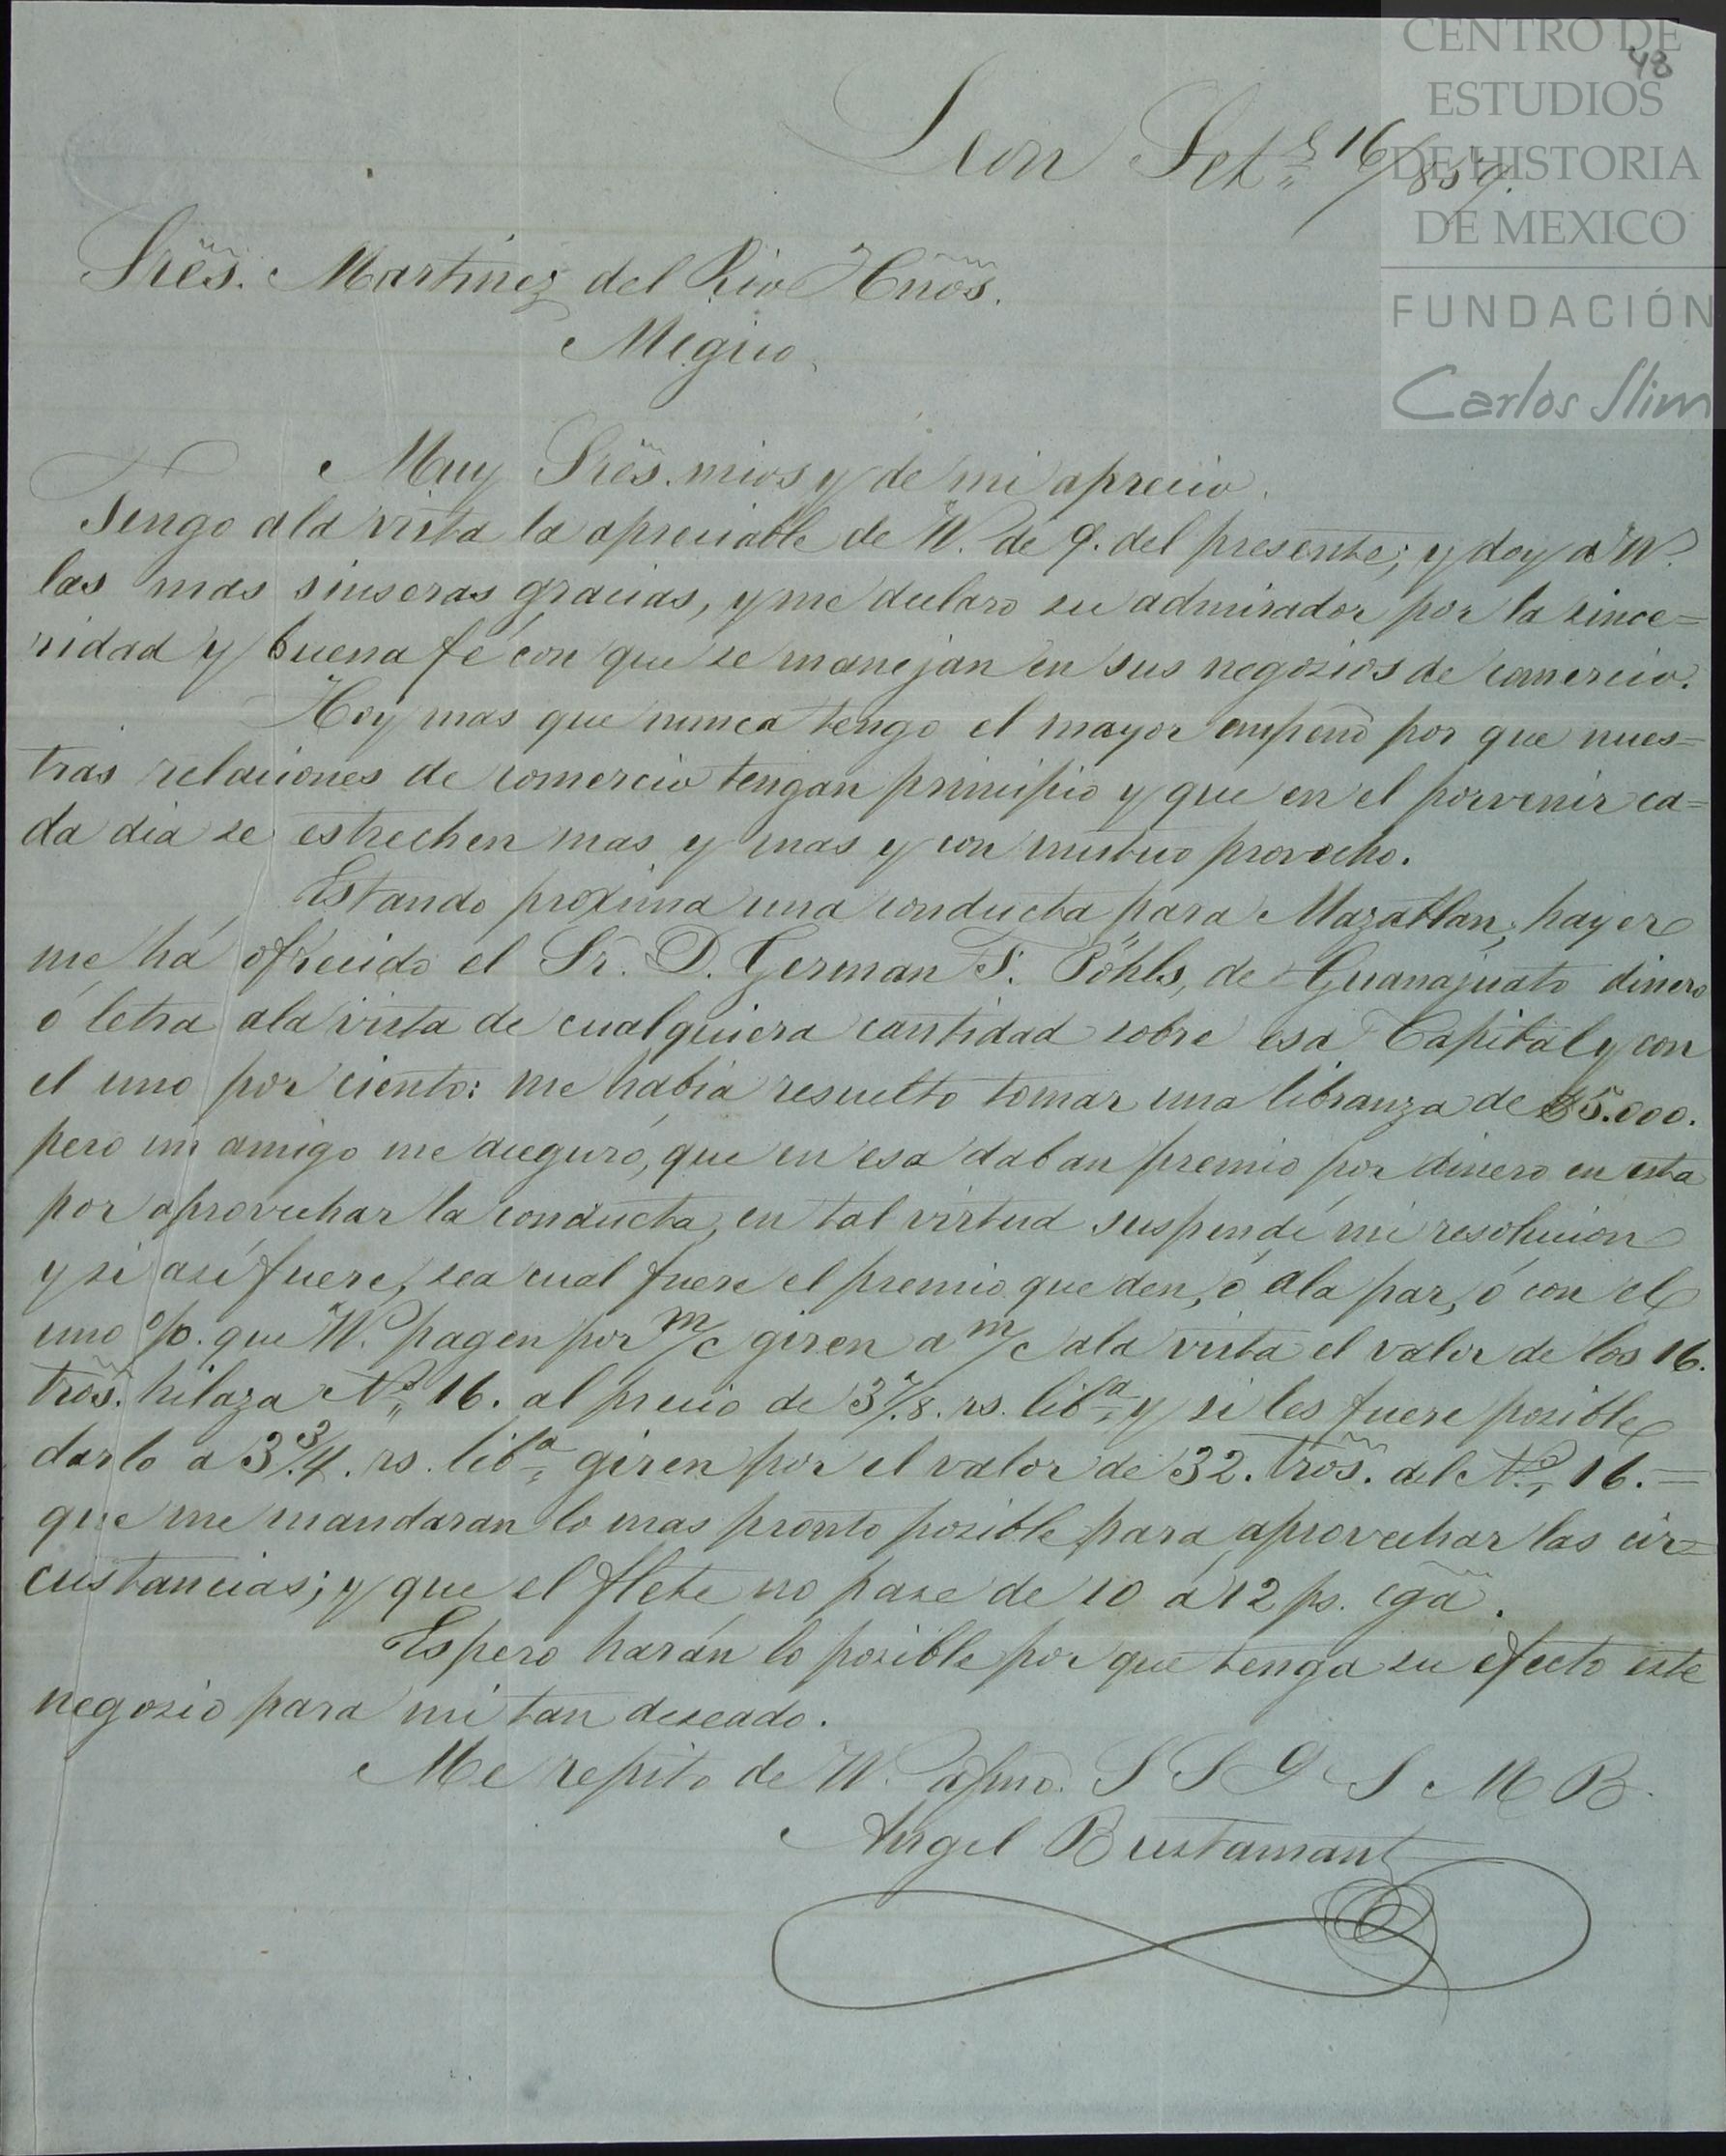 CENTRO DE
ESTUDIOS
DE HISTORIA
DE MEXICO
FUNDACIÓN
Carlos Slim
48
Leon Set.e 16/857.
Sres. Martinez del Rio Hnos.
Megico
Muy Sres. mios y de mi aprecio.
Tengo ala vista la apreciable de VV. de 9. del presente; y doy a VV.
las mas sinseras gracias, y me declaro su admirador por la since=
ridad y buena fé con que se manejan en sus negosios de comercio.
Hoy mas que nunca tengo el mayor empeño por que nues=
tras relaciones de comercio tengan principio y que en el porvenir ca=
da dia se estrechen mas y mas y con mutuo provecho.
Estando proxima una conducta para Mazatlan, hayer
me há ofrecido el Sr. D. German F. Pöhls, de Guanajuato dinero
ó letra ala vista de cualquiera cantidad sobre esa Capital y con
el uno por ciento: me habia resuelto tomar una libranza de $5.000.
pero un amigo me aseguró, que en esa daban premio por dinero en esta
por aprovechar la conducta, en tal virtud suspendí mi resolucion
y si así fuere, sea cual fuere el premio que den, ó ala par, ó con el
uno %. que VV. pagen por m/c giren a m/c ala vista el valor de los 16.
tros. hilaza No. 16. al precio de 3 7/8. rs. liba. y si les fuere posible
darlo a 3 3/4. rs. liba. giren por el valor de 32. tros. del No. 16.=
que me mandaran lo mas pronto posible para aprovechar las cir=
custancias; y que el flete no pase de 10 á 12 ps. cga.
Espero harán lo posible por que tenga su efecto este
negosio para mi tan deseado.
Me repito de VV. afmo. S S Q S M B.
Angel Bustamante